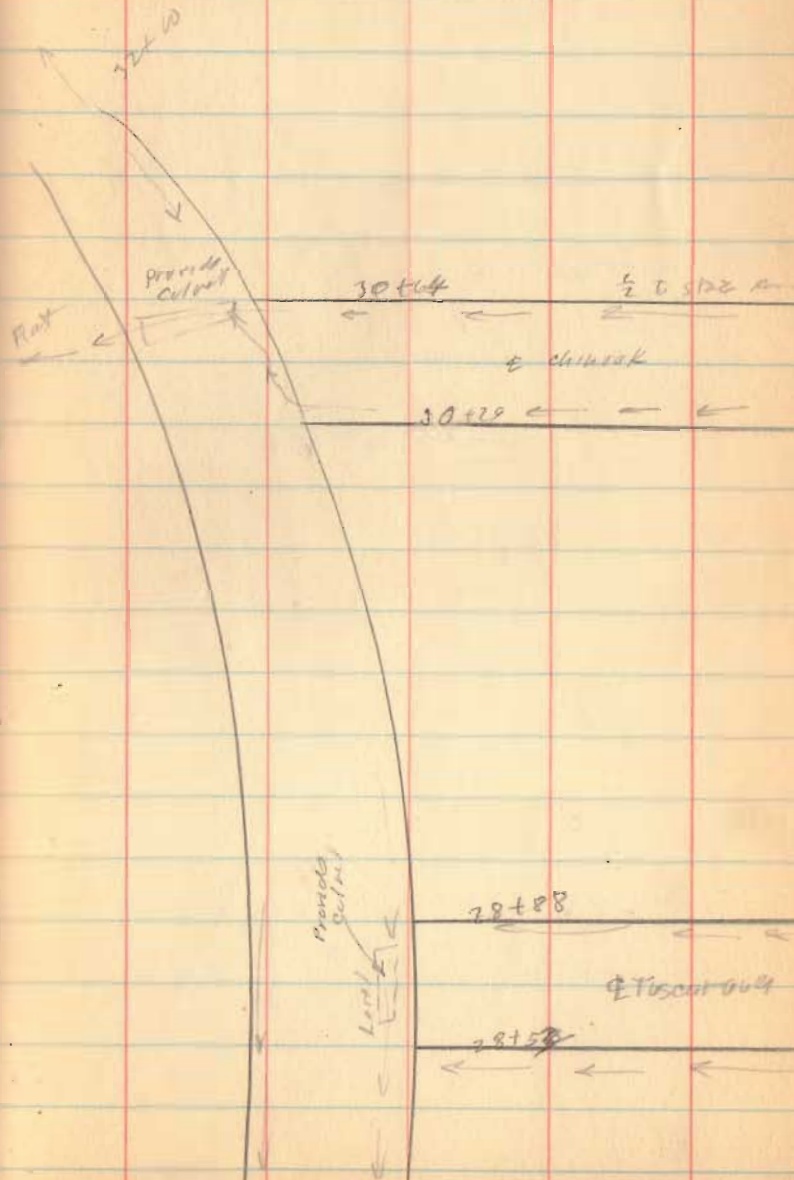 32+10
Provide
Culvert
Flat
30+64
½ C SIZE
℄ chinook
30+29
Provide
Culvert
28+88
Level
℄ Tuscarawas
28+53